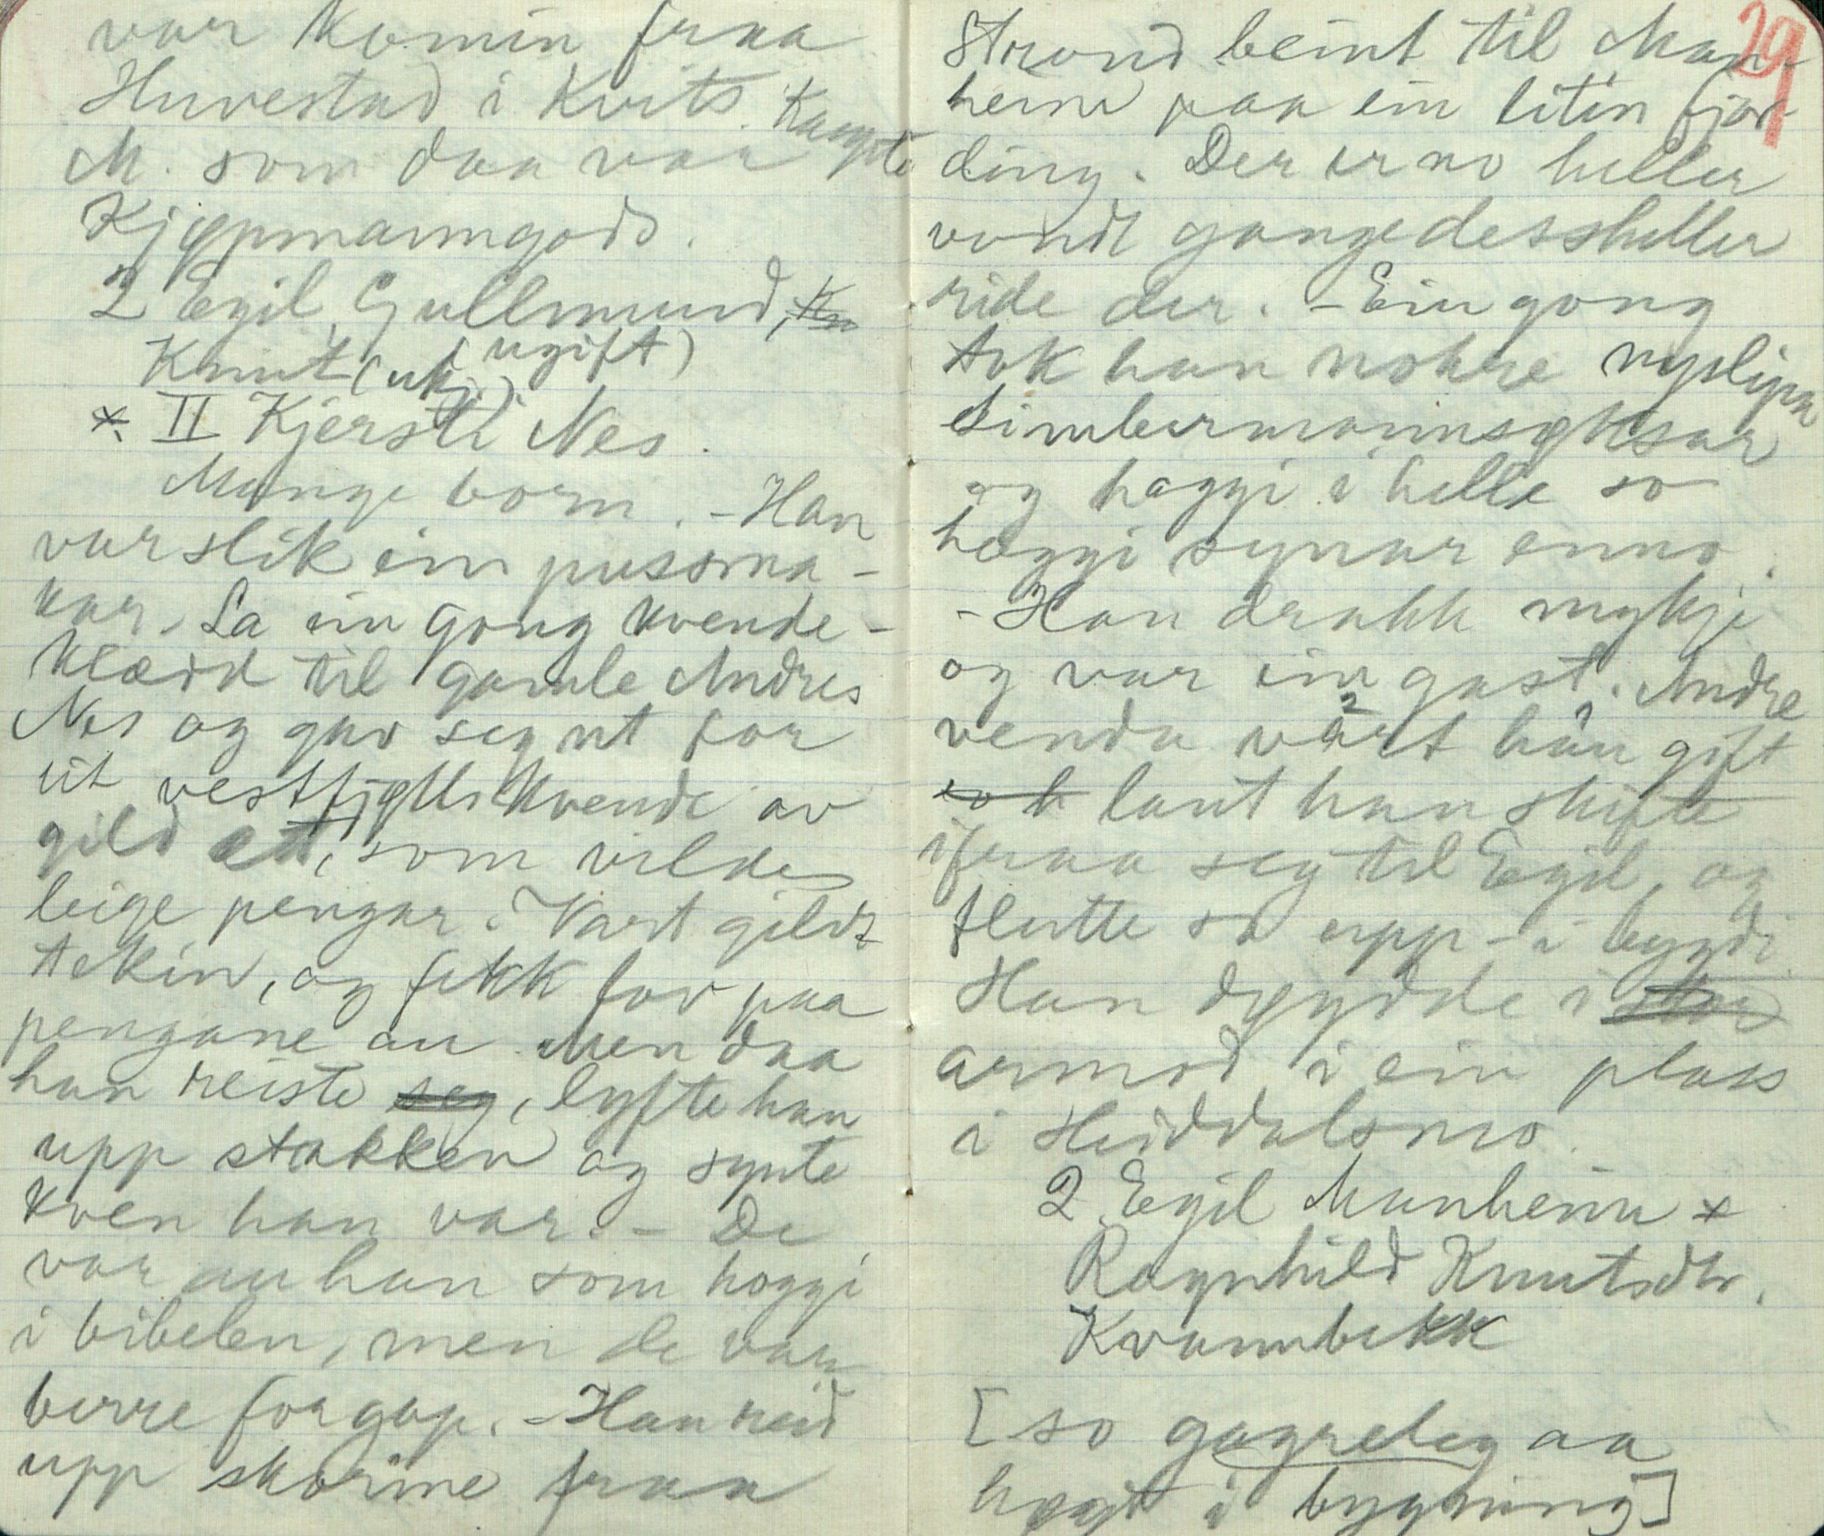 var komin fraa
Huvestad i Kvits. Kaupte
M. som daa var
Kjøpmanngods.
2 Egil, Gullmund, Kn
Knut (ukj. ugift)
x. II Kjersti Nes.
Mange born. - Han
var slik ein pussma-
kar. La ein gong kvende-
klæde til gamle Andres
Nes og gav seg ut for
eit vestfjølls kvende av
gild ætt, som vilde
leige pengar. Vart gildt
tekin, og fekk lov paa
pengane au. Men daa
han reiste seg, lyfte han
upp stakken og synte
kven han var. - De
var au han som hoggi
i bibelen, men de var
berre for gap. - Han reid
upp skorine fraa
29
Strond beint til Man-
heim paa ein litin fjor-
ding. Der er no heller
vondt gange dessheller
ride der. - Ein gong
tok han nokre nyslipa
timbermannsøksar
og hoggi i helle so
hoggi synar enno.
- Han drakk mykje
og var ein gast. Andre
venda vart han gift
so h laut han skifte
ifraa seg til Egil, og
flutte so upp i bygdi.
Han døydde i stor
armod i ein plass
i Heiddalsmo.
2 Egil Manheim x
Ragnhild Knutsdtr.
Kvannbekk
[so gagreleg aa
høgt i bygning]